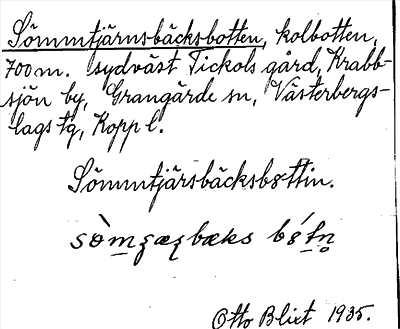 Sömmtjärnsbäcksbotten, kolbotten,
700 m. sydväst Tickols gård, Krabb-
sjön by, Grangärde sn, Västerbergs-
lags tg, Kopp l.
Sömmtjärsbäcksbottin.
Otto Blixt 1935.